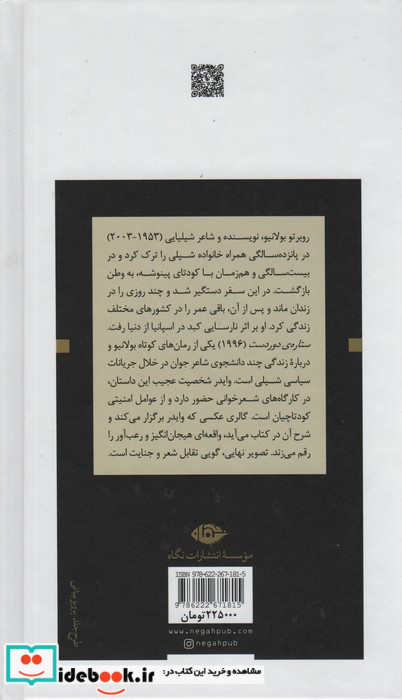 روبرتو بولانیو، نویسنده و شاعر شیلیایی (۱۹۵۳-۲۰۰۳)
در پانزده‌سالگی همراه خانواده شیلی را ترک کرد و در
بیست‌سالگی و هم‌زمان با کودتای پینوشه، به وطن
بازگشت. در این سفر دستگیر شد و چند روزی را در
زندان ماند و پس از آن، باقی عمر را در کشورهای مختلف
زندگی کرد. او بر اثر نارسایی کبد در اسپانیا از دنیا رفت.
ستاره‌ی دوردست (۱۹۹۶) یکی از رمان‌های کوتاه بولانیو و
درباره‌ی زندگی چند دانشجوی شاعر جوان در خلال جریانات
سیاسی شیلی است. وایدر شخصیت عجیب این داستان،
در کارگاه‌های شعرخوانی حضور دارد و از عوامل امنیتی
کودتاچیان است. گالری عکسی که وایدر برگزار می‌کند و
شرح آن در کتاب می‌آید، واقعه‌ای هیجان‌انگیز و رعب‌آور را
رقم می‌زند. تصویر نهایی، گویی تقابل شعر و جنایت است.
مؤسسهٔ انتشارات نگاه
ISBN 978-622-267-181-5
9 786222 671815
۲۲۵۰۰۰ تومان
negahpub.com
negahpub
طرح جلد: پرویز بیانی
iidebook.ir
مشاهده و خرید این کتاب در: